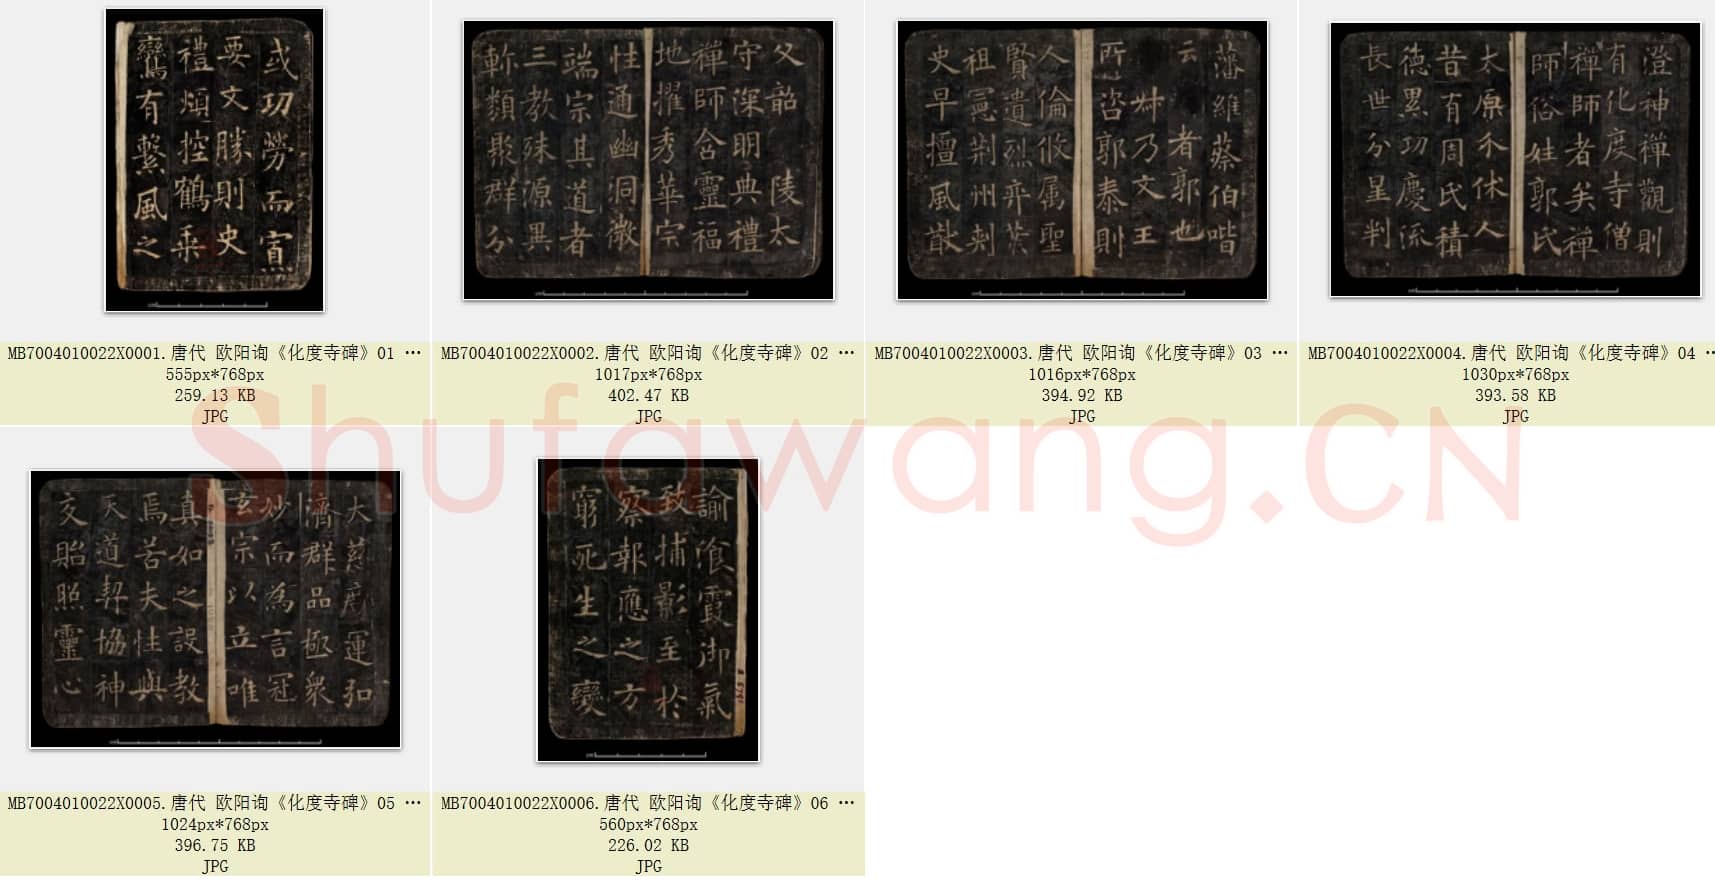 或功勞而寡
要文勝則史
禮煩控鶴乘
鸞有繫風之
MB7004010022X0001.唐代 欧阳询《化度寺碑》01 …
555px*768px
259.13 KB
JPG
父韶 陵太
守深明典禮
禪師含靈福
地擢秀華宗
性通幽洞微
端宗其道者
三教殊源異
軫類聚群分
MB7004010022X0002.唐代 欧阳询《化度寺碑》02 …
1017px*768px
402.47 KB
JPG
藩維蔡伯喈
云 者郭也
乃文王
所咨郭泰則
人倫攸属聖
賢遺烈弈葉
祖憲荊州刺
史早擅風猷
MB7004010022X0003.唐代 欧阳询《化度寺碑》03 …
1016px*768px
394.92 KB
JPG
澄神禪觀則
有化度寺僧
禪師者矣禪
師俗姓郭氏
太原介休人
昔有周氏積
德累功慶流
長世分星判
MB7004010022X0004.唐代 欧阳询《化度寺碑》04 …
1030px*768px
393.58 KB
JPG
Shufawang.CN
大慈廣運弘
濟群品極衆
妙而為言冠
玄宗以立唯
真如之設教
焉若夫性與
天道契協神
交貽照靈心
MB7004010022X0005.唐代 欧阳询《化度寺碑》05 …
1024px*768px
396.75 KB
JPG
諭飡霞御氣
致捕影至於
察報應之方
窮死生之變
MB7004010022X0006.唐代 欧阳询《化度寺碑》06 …
560px*768px
226.02 KB
JPG